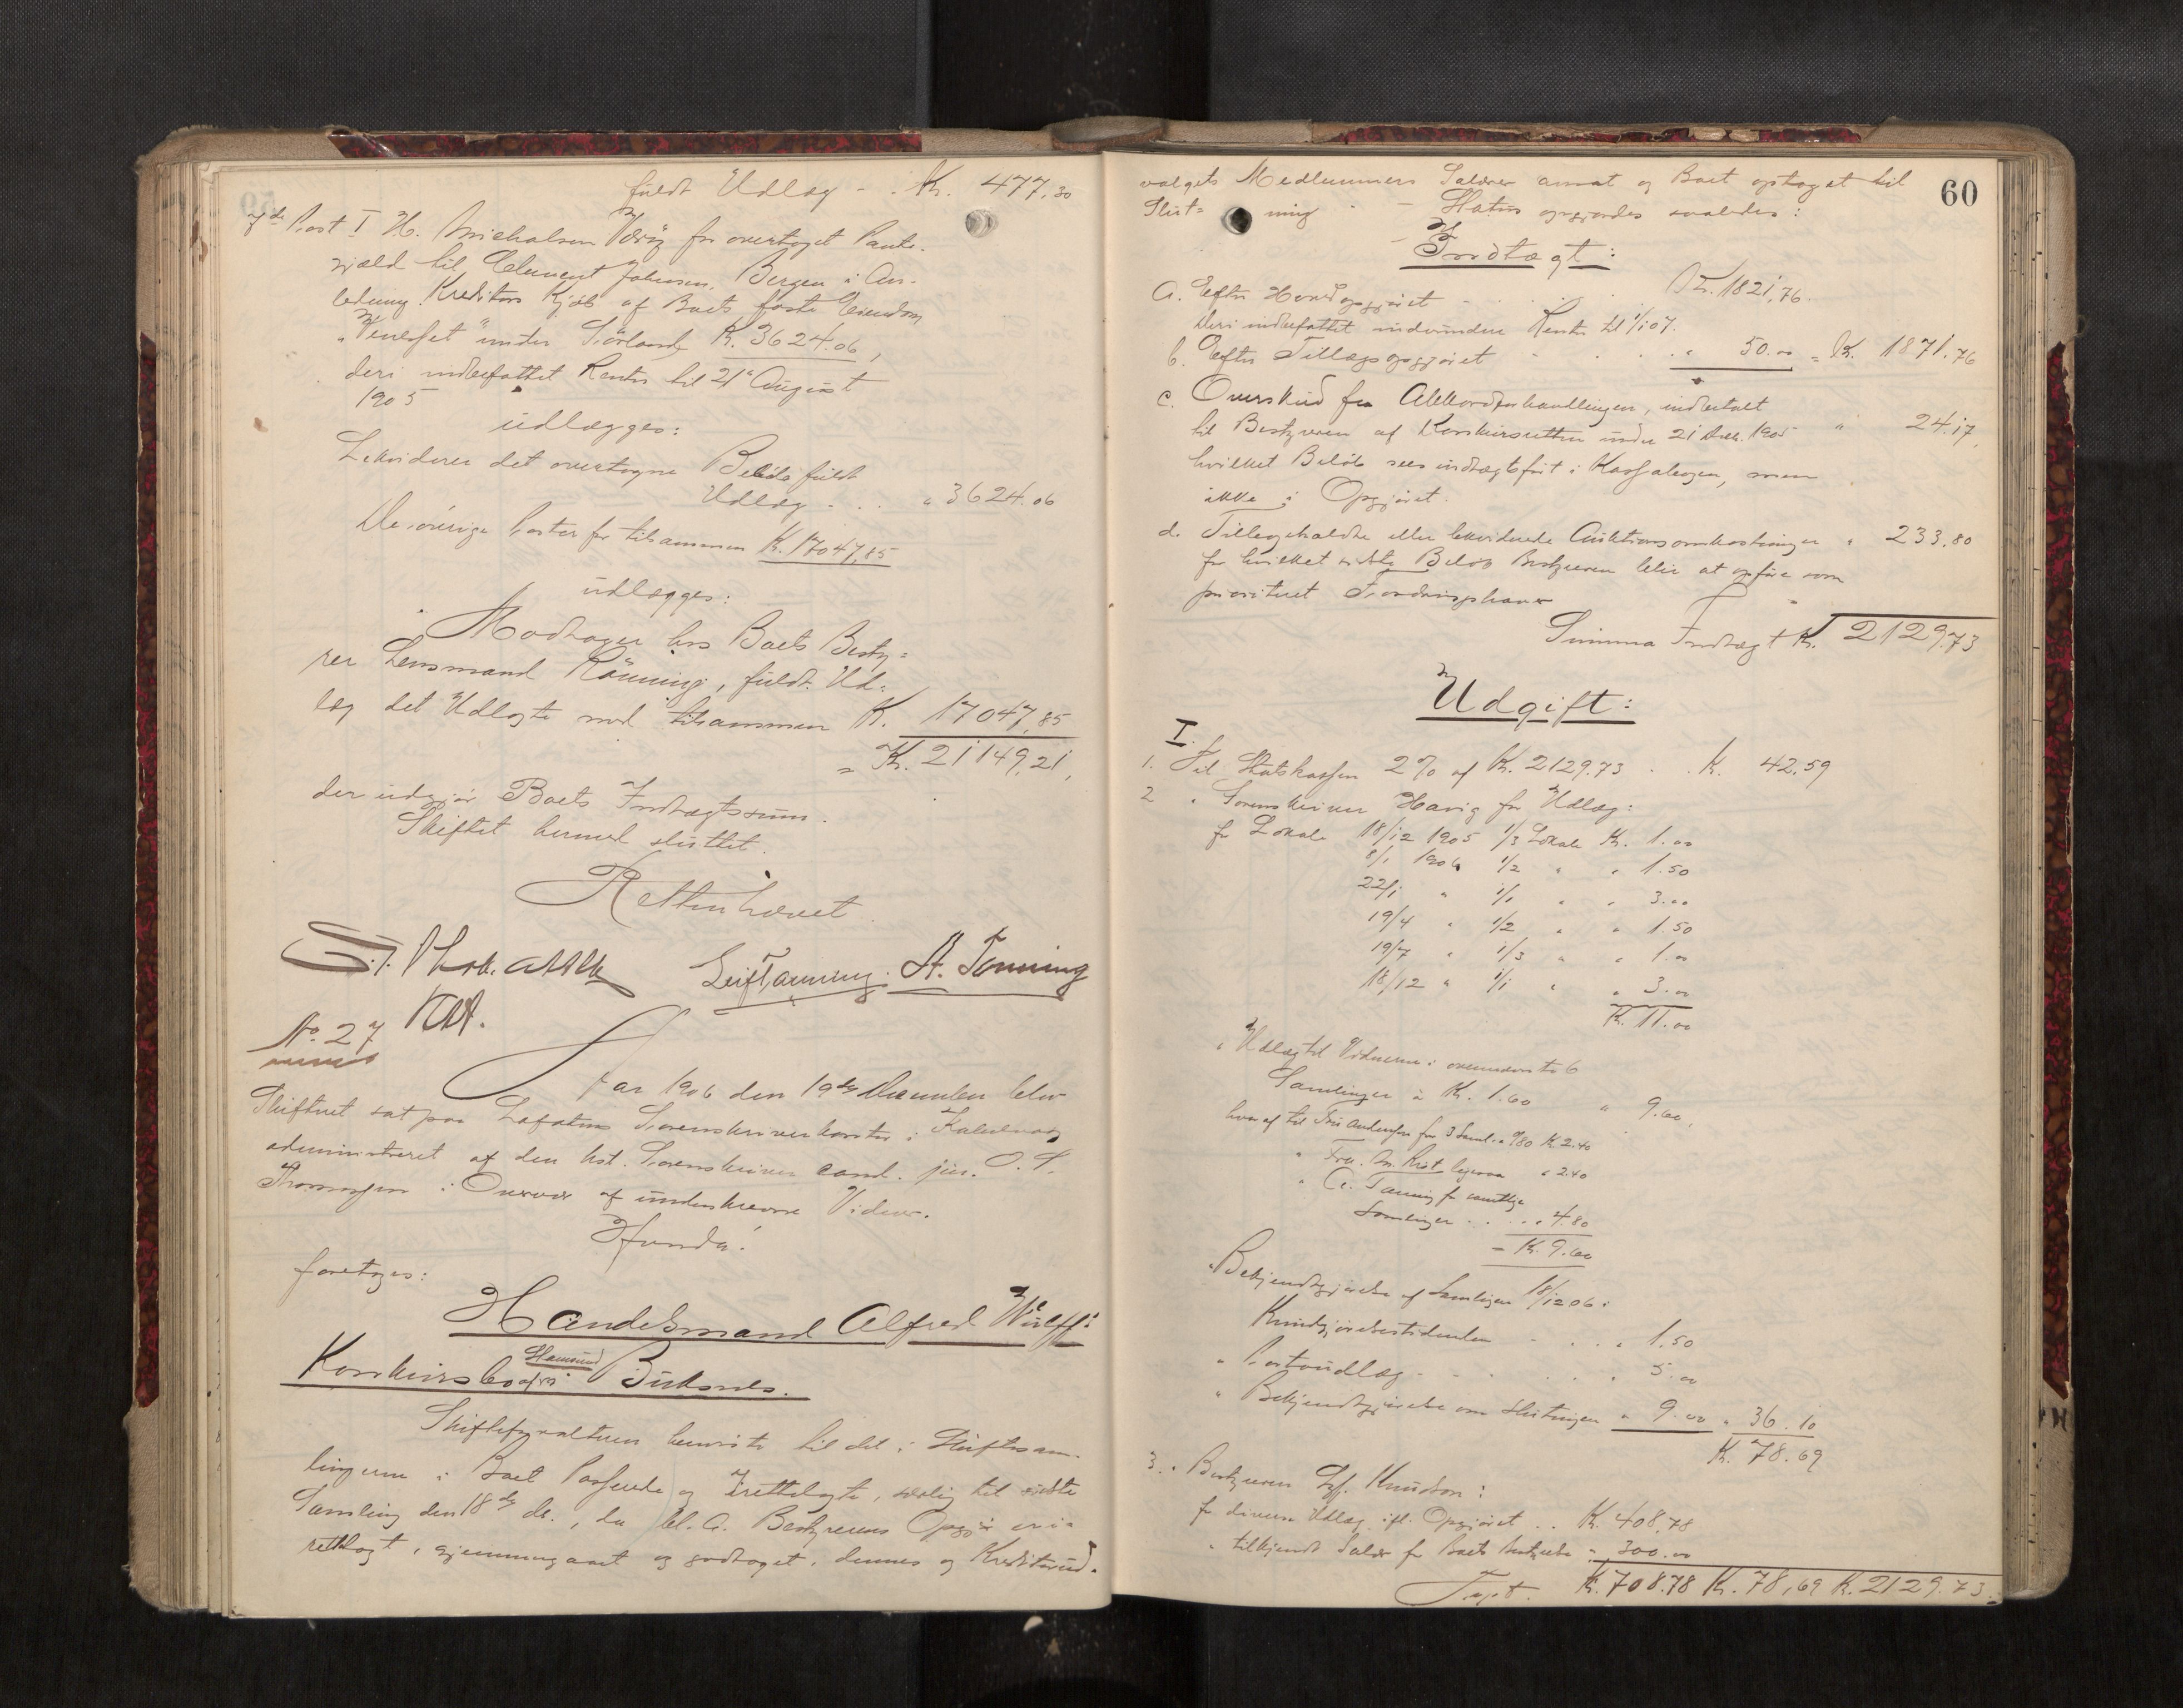 fuldt Udlæg - . Kr. 477,30
7de Post I H. Michalsen Værøy for overtaget Pante-
gjæld til Clement Johnsen, Bergen i An-
ledning Kreditors Kjøb af Boets faste Eiendom
"Veneset" under Sørland, K. 3624.06,
deri indbefattet Renter til 21' August
1905
udlægges:
Likviderer det overtagne Beløb fuldt
Udlæg - . . " 3624.06
De øvrige Poster for tilsammen K. 17047,85
udlægges:
Modtager hos Boets Besty=
rer Lensmand Rønning, fuldt Ud-
læg det Udlagte med tilsammen K. 17047,85
= Kr. 21149,21,
der udgjør Boets Indtægtssum.
Skiftet hermed sluttet.
Retten hævet.
Leif Tønning. A. Tønning
Kst.
No. 27
Aar 1906 den 19de December blev
Skifteret sat paa Lofotens Sorenskriverkontor i Kabelvaag
administreret af den kst. Sorenskriver cand. jur. O. T.
Thomassen i Overvær af underskrevne Vidner.
Hvorda!
foretoges:
Handelsmand Alfred Wulff's
Konkursbo af Stamsund i Buksnes.
Skifteforvalteren henviste til det i Skiftesam-
lingerne i Boet Passerede og Irettelagte, særlig til sidste
Samling den 18de ds., da bl. a. Bestyrerens Opgjør er i-
rettelagt, gjennemgaaet og godtaget, dennes og Kreditorud-
60
valgets Medlemmers Salærer ansat og Boet optaget til
Slut= ning - Status opgjordes saaledes:
Indtægt:
a. Efter Hovedopgjøret - . . . Kr. 1821,76.
Deri indbefattet indvundne Renter til 1/1 07.
b. Efter Tillægsopgjøret - . . . " 50.00 = Kr. 1871.76
c. Overskud fra Akkordforhandlingen, indbetalt
til Bestyreren af Konkursretten under 21 Decb. 1905 " 24.17,
hvilket Beløb sees indtægtsført i Kassabogen, men
ikke i Opgjøret.
d. Tilbageholdte eller likviderede Auktionsomkostninger " 233.80
for hvilket sidste Beløb Bestyreren blir at opføre som
prioriteret Fordringshaver
Summa Indtægt Kr. 2129.73
Udgift:
I.
1. Til Statskassen 2% af Kr. 2129.73 . . K. 42.59
2 " Sorenskriver Havig for Udlæg:
for Lokale 18/12 1905 1/3 Lokale Kr. 1.00
8/1 1906 1/2 " " 1.50
22/1 " 1/1 " " 3.00
19/4 " 1/2 " " 1.50
19/7 " 1/3 " " 1.00
18/12 " 1/1 " " 3.00
Kr. 11.00
" Udlæg til Vidnerne i ovennævnte 6
Samlinger à Kr. 1.60 " 9.60,
hvoraf til Frk Andersen for 3 Saml. à 0/80 K 2.40
" Fru. M. Kristligeraa " 2.40
" Cl. Tønning for samtlige
Samlinger . . . . " 4.80
= Kr. 9.60
" Bekjendtgjørelse af Samlingen 18/12 06 i
Kundgjørelsestidenden - . . " 1.50
" Portoudlæg - - . . . " 5.00
" Bekjendtgjørelse om Slutningen " 9.00 " 36.10
K. 78.69
3. " Bestyreren Sgf. Knudson:
for diverse Udlæg ifl. Opgjøret . . K. 408,78
" tilkjendt Salær for Boets Bestyrelse " 300.00
Trspt. K. 708.78 K. 78,69 K. 2129.73.